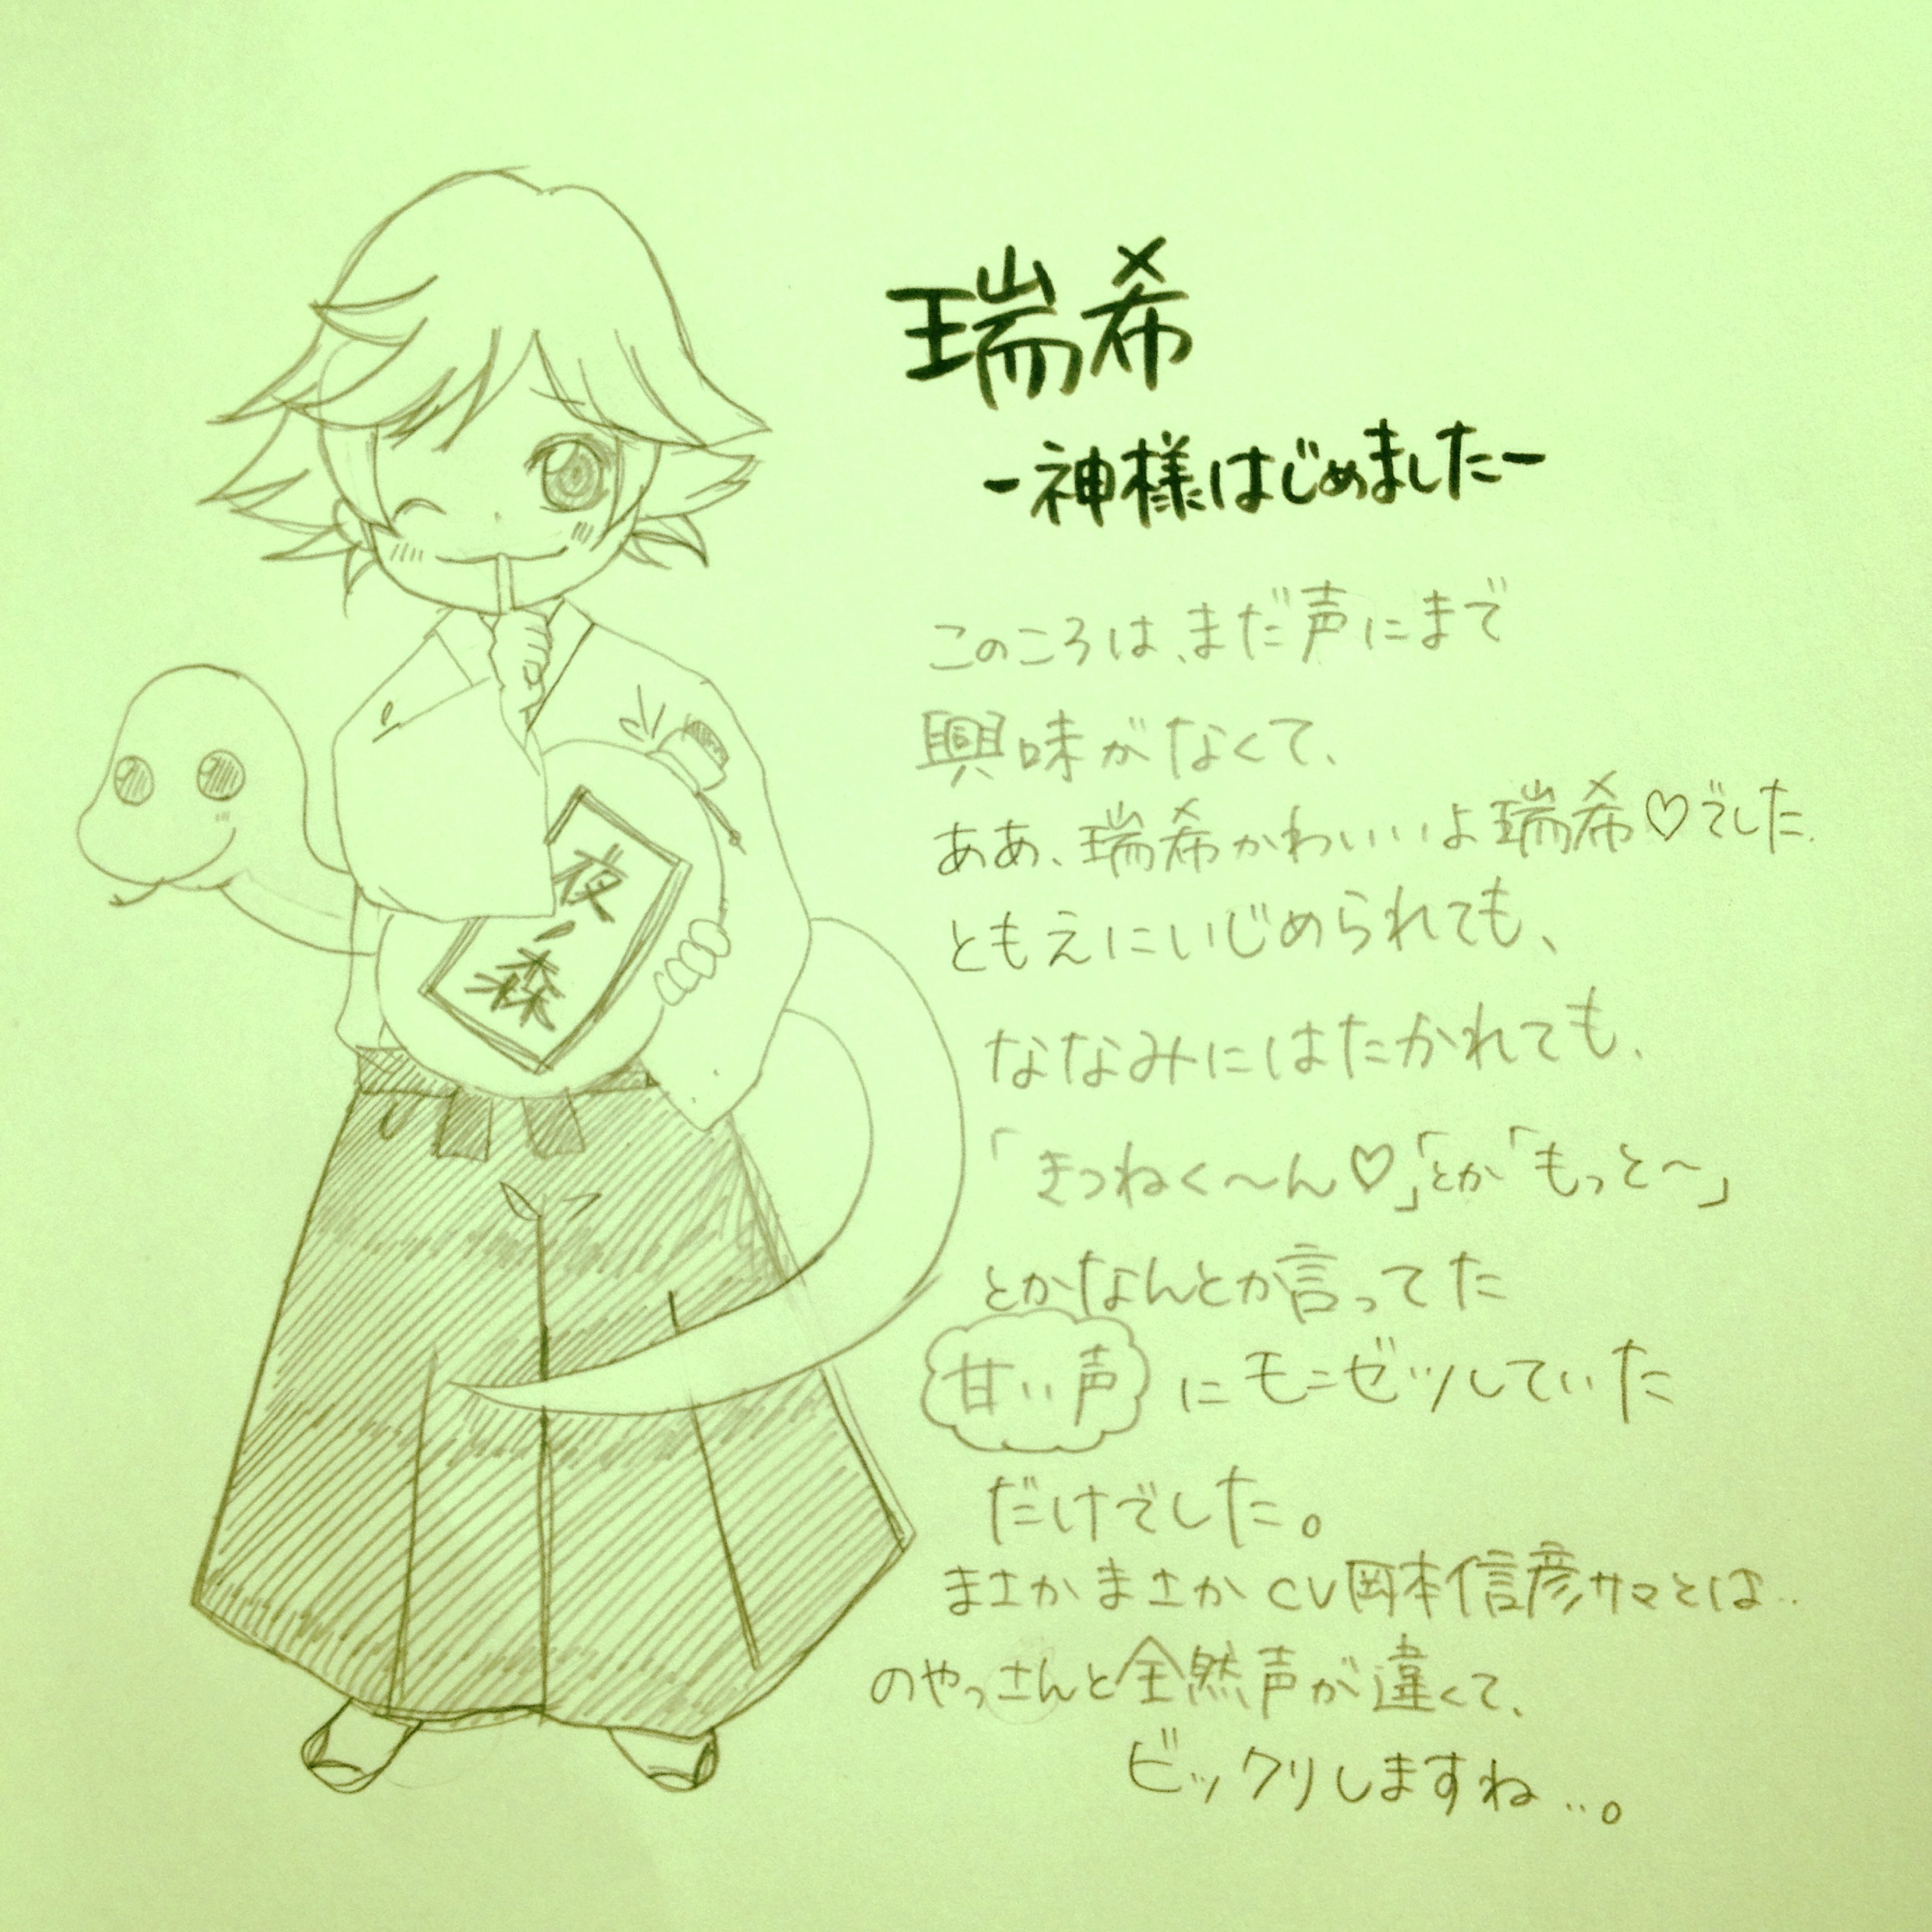 瑞希
-神様はじめました-
このころは、まだ声にまで
興味がなくて、
ああ、瑞希かわいいよ瑞希♡でした.
ともえにいじめられても、
ななみにはたかれても、
「きつねく〜ん♡」とか「もっと〜」
とかなんとか言ってた
甘い声 にモンゼツしていた
だけでした。
まさかまさかCV岡本信彦サマとは..
のやっさんと全然声が違くて、
ビックリしますね...。
夜ノ
森